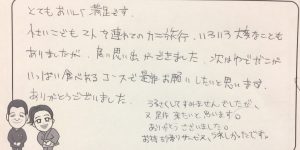 とてもおいしく満足です。
小さいこども2人を連れてのカニ旅行、いろいろ大変なことも
ありましたが、良い思い出ができました。次はゆでガニが
いっぱい食べれるコースで是非お願いしたいと思います。
ありがとうございました。
うるさくしてすみませんでしたが、
又是非来たいと思います。
ありがとうございました。
お待ち サービス 楽しかったです。